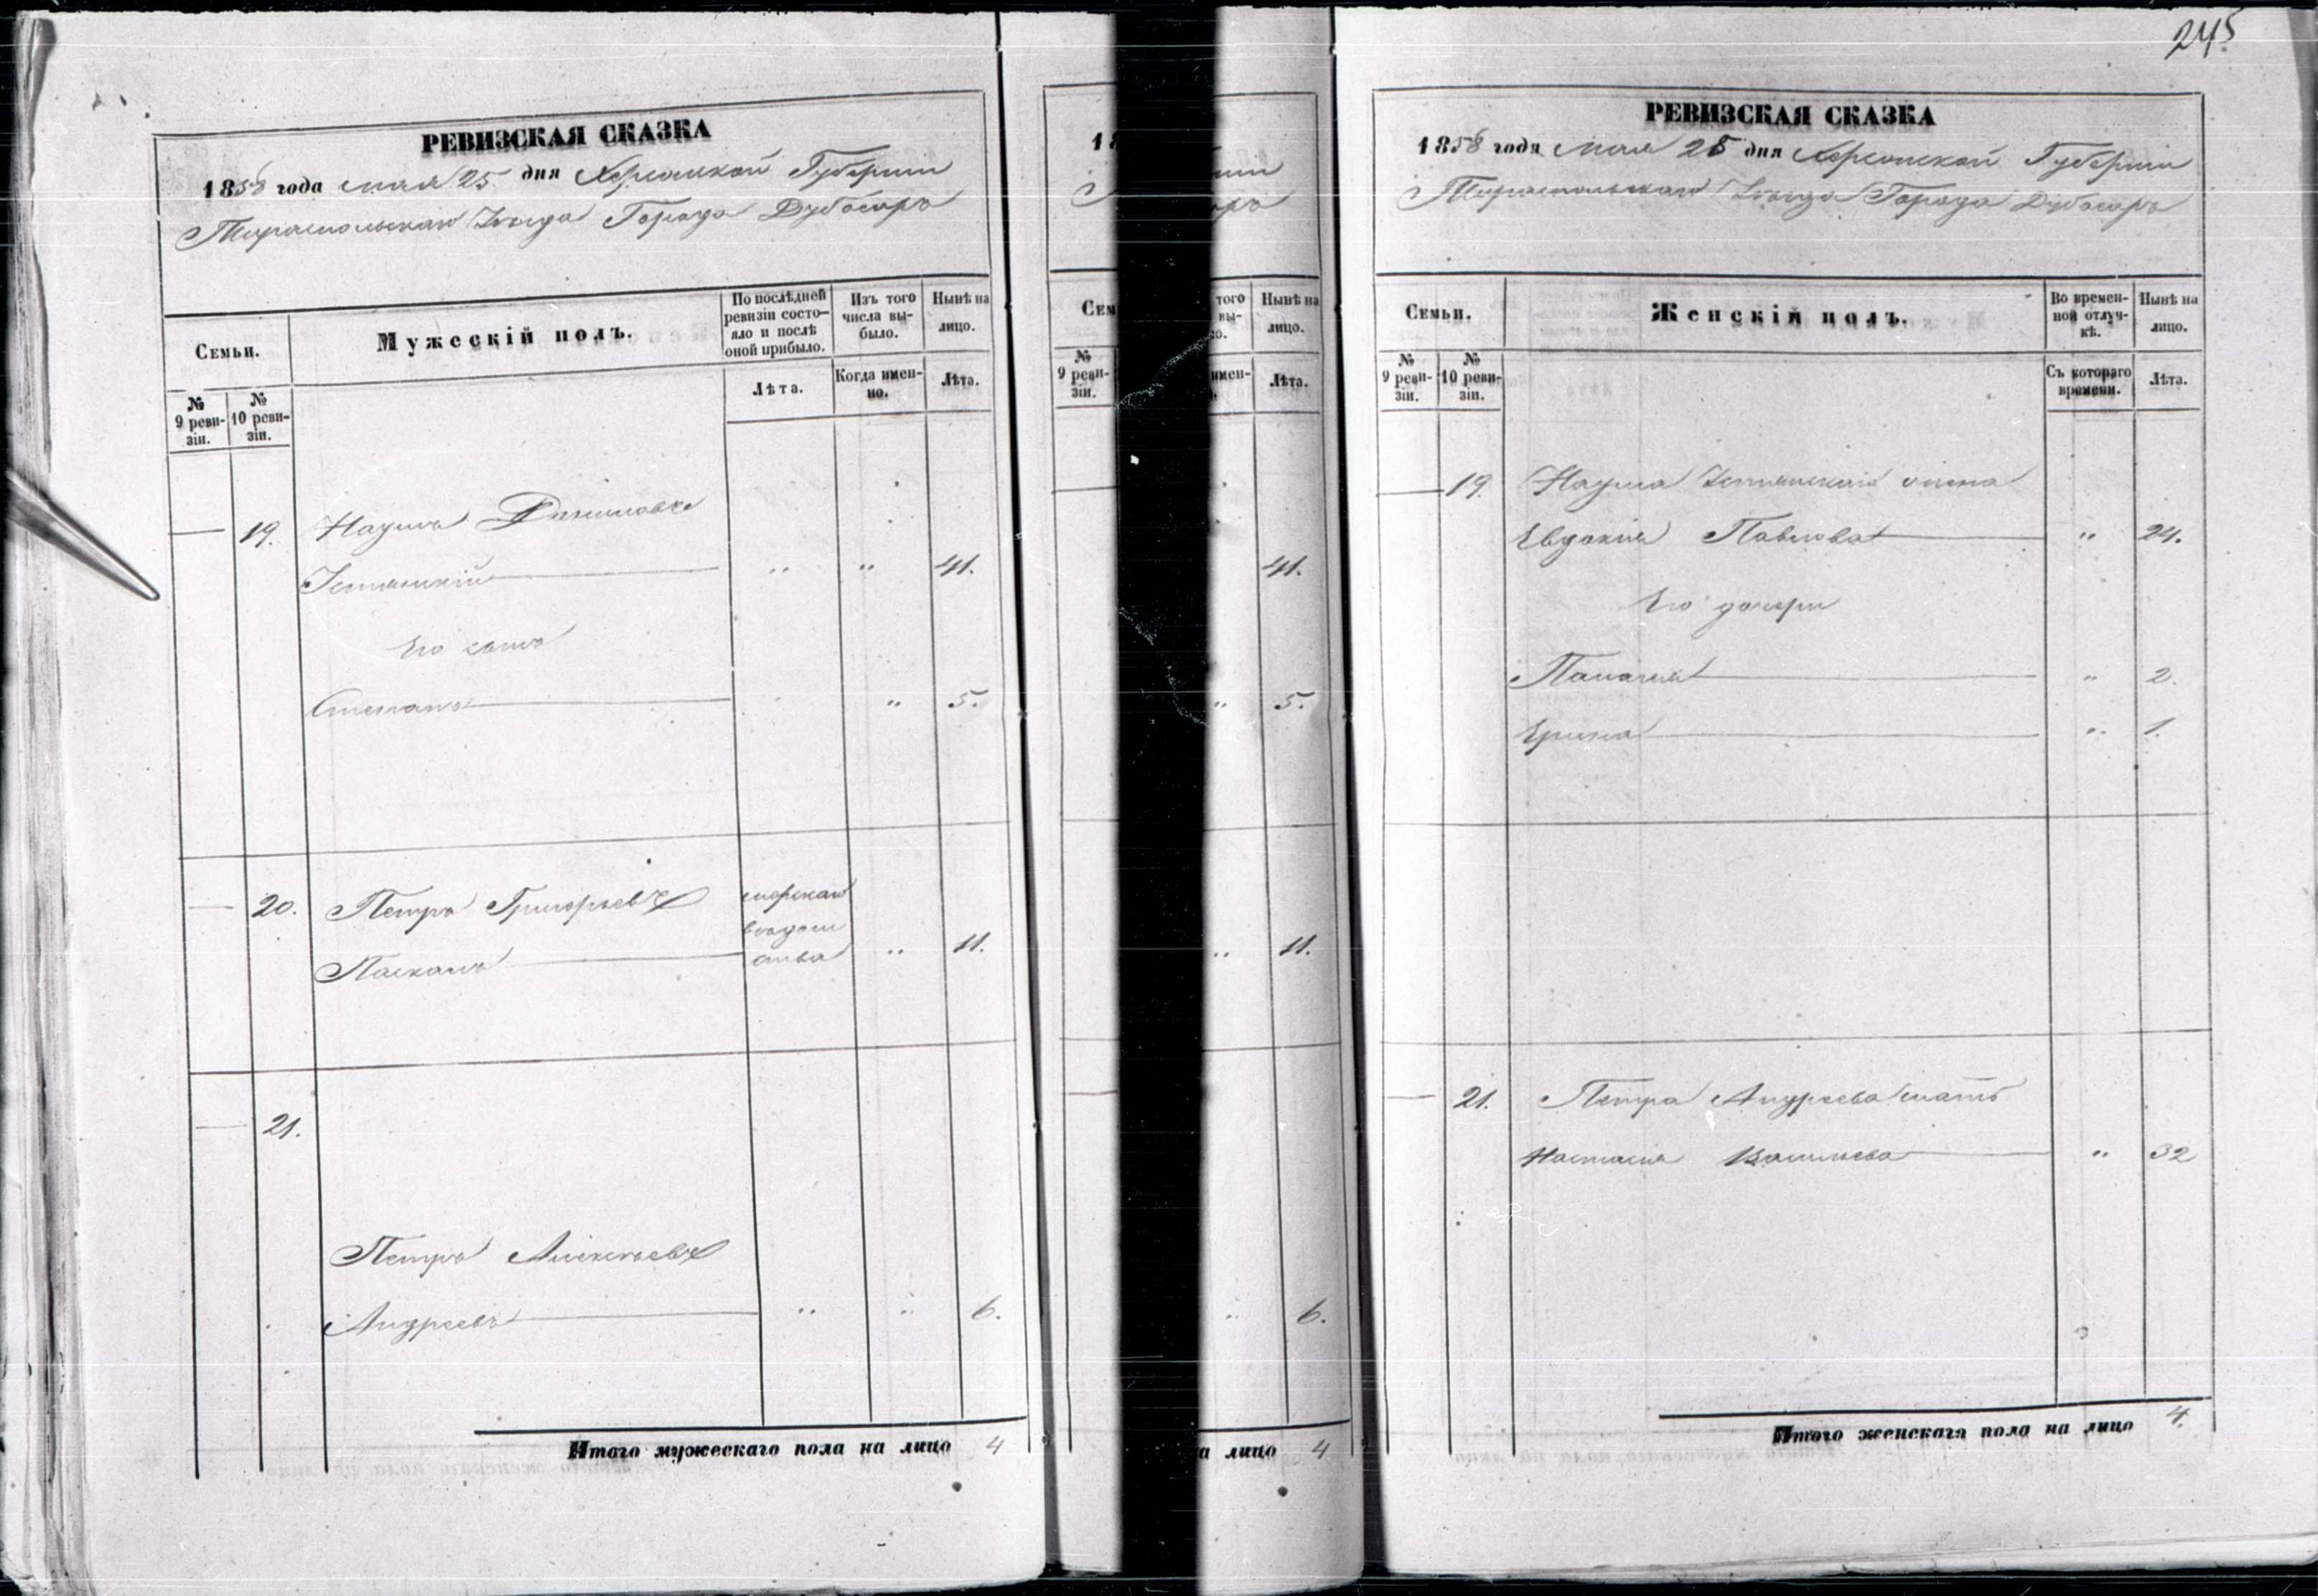 РЕВИЗСКАЯ СКАЗКА
1858 года мая 25 дня Херсонской Губерніи
Тираспольскаго Уѣзда Города Дубосаръ
Семьи.
Мужескій полъ.
По послѣдней ревизіи состо-
яло и послѣ
оной прибыло.
Изъ того
числа вы-
было.
Нынѣ на
лицо.
№
9 реви-
зіи.
№
10 реви-
зіи.
Лѣта.
Когда имен-
но.
Лѣта.
— 19. Наумъ
" " 41.
Его сынъ
Степанъ " 5.
— 20. Петръ Григорьевъ
" 11.
— 21.
Петръ Алексѣевъ
Андреевъ " " 6.
Итого мужескаго пола на лицо 4
18
Сем
№
9 реви-
зіи.
того
вы-
о.
Нынѣ на
лицо.
имен-
Лѣта.
41.
" 5.
" 11.
" 6.
а лицо 4
245
РЕВИЗСКАЯ СКАЗКА
1858 года мая 25 дня Херсонской Губерніи
Тираспольскаго Уѣзда Города Дубосаръ
Семьи.
Женскій полъ.
Во времен-
ной отлуч-
кѣ.
Нынѣ на
лицо.
№
9 реви-
зіи.
№
10 реви-
зіи.
Съ котораго
времени.
Лѣта.
— 19. Наума жена
Евдокія Павлова " 24.
Его дочери
" 2.
Ирина " 1.
— 21. Петра Андреева мать
Настасія Васильева " 32
Итого женскаго пола на лицо 4.